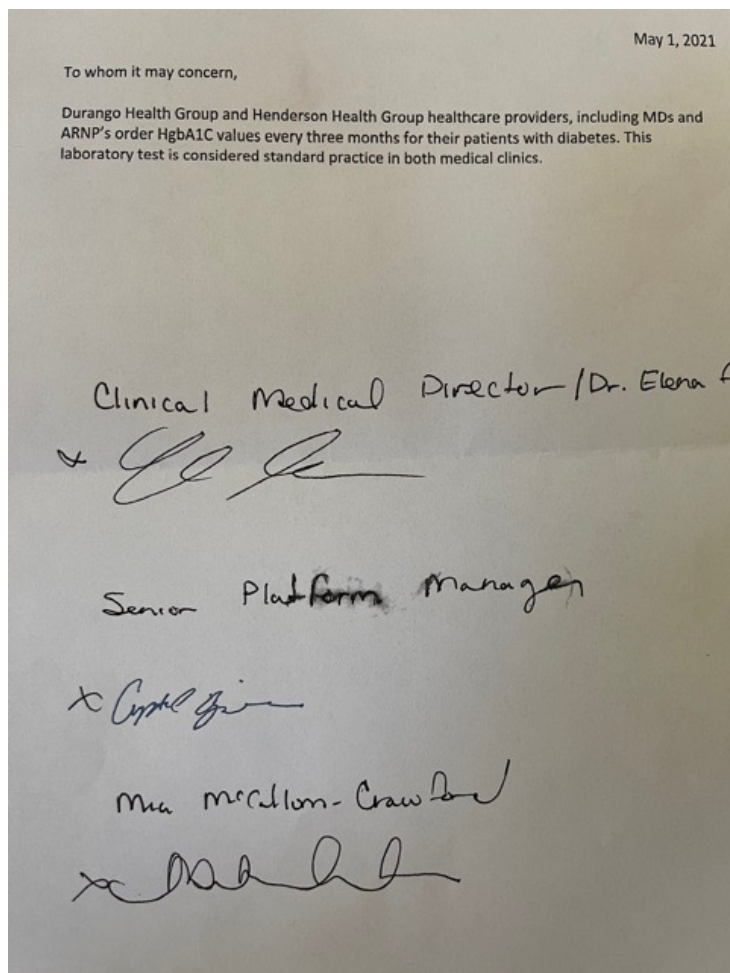 May 1, 2021
To whom it may concern,
Durango Health Group and Henderson Health Group healthcare providers, including MDs and
ARNP's order HgbA1C values every three months for their patients with diabetes. This
laboratory test is considered standard practice in both medical clinics.
Clinical Medical Director/Dr. Elena
x
Senior Platform Manager
x
Mia McCallom-Crawford
x